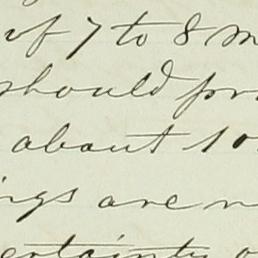 of 7 to 8 m
should pr
about 10
ngs are n
ertainty o